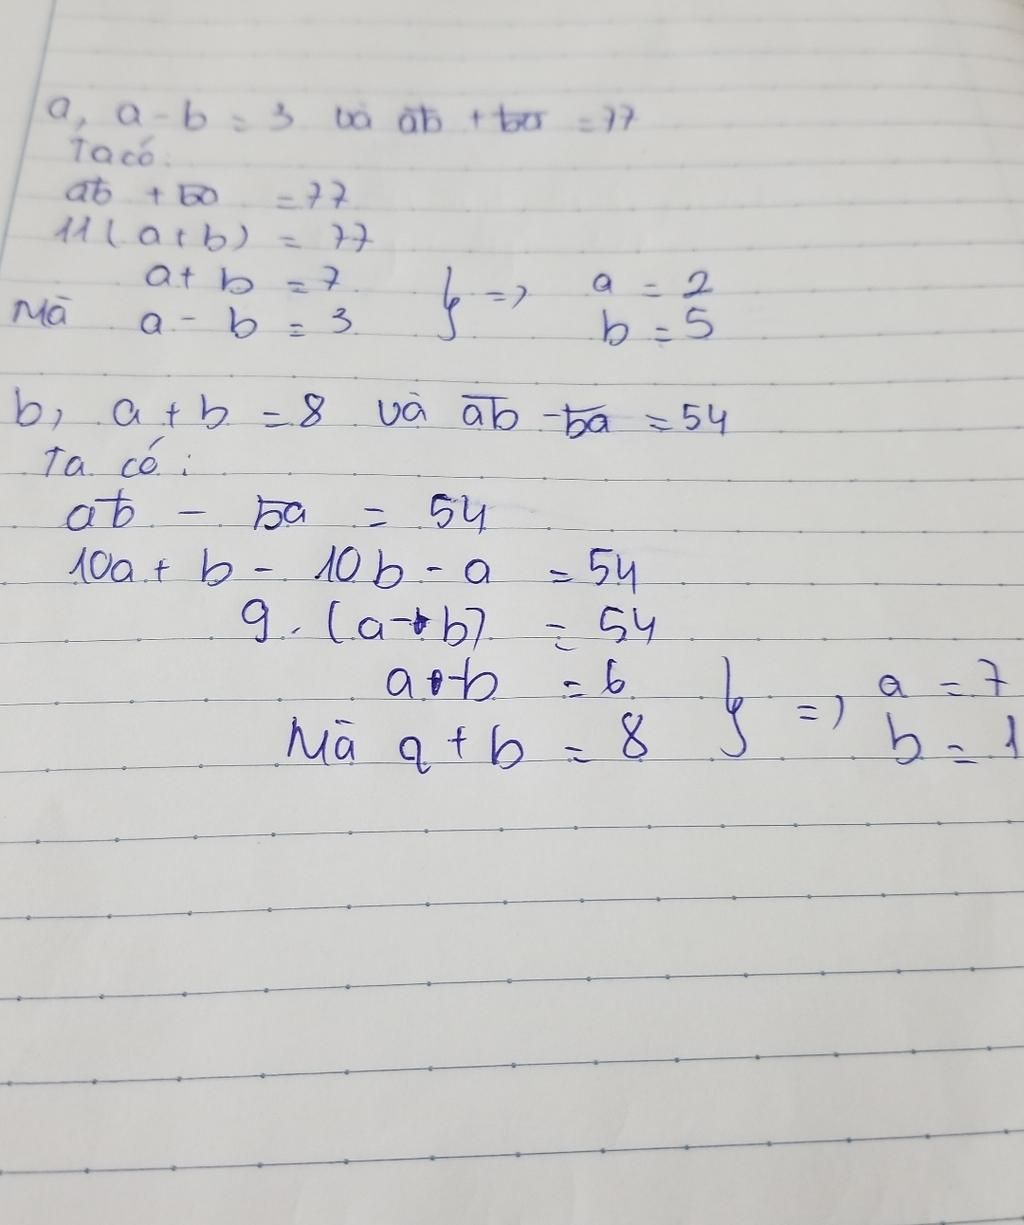 a, a - b = 3 và a̅b̅ + b̅a̅ = 77
Ta có:
a̅b̅ + b̅a̅ = 77
11(a + b) = 77
a + b = 7 } => a = 2
Mà a - b = 3 b = 5
b, a + b = 8 và a̅b̅ - b̅a̅ = 54
Ta có:
a̅b̅ - b̅a̅ = 54
10a + b - 10b - a = 54
9. (a - b) = 54
a - b = 6 } => a = 7
Mà a + b = 8 b = 1